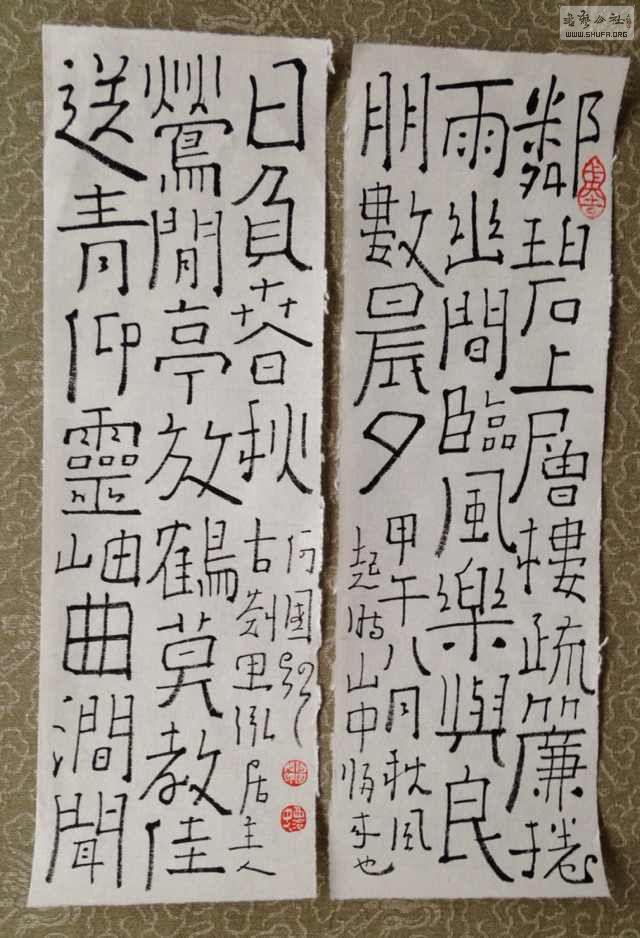 鄰碧上層樓疏簾捲
雨幽間臨風樂與良
朋數晨夕
甲午八月秋風
起時山中歸來也
送青仰靈岫曲澗聞
鶯閒亭放鶴莫教佳
日負春秋
居主人
書藝公社
WWW.SHUFA.ORG